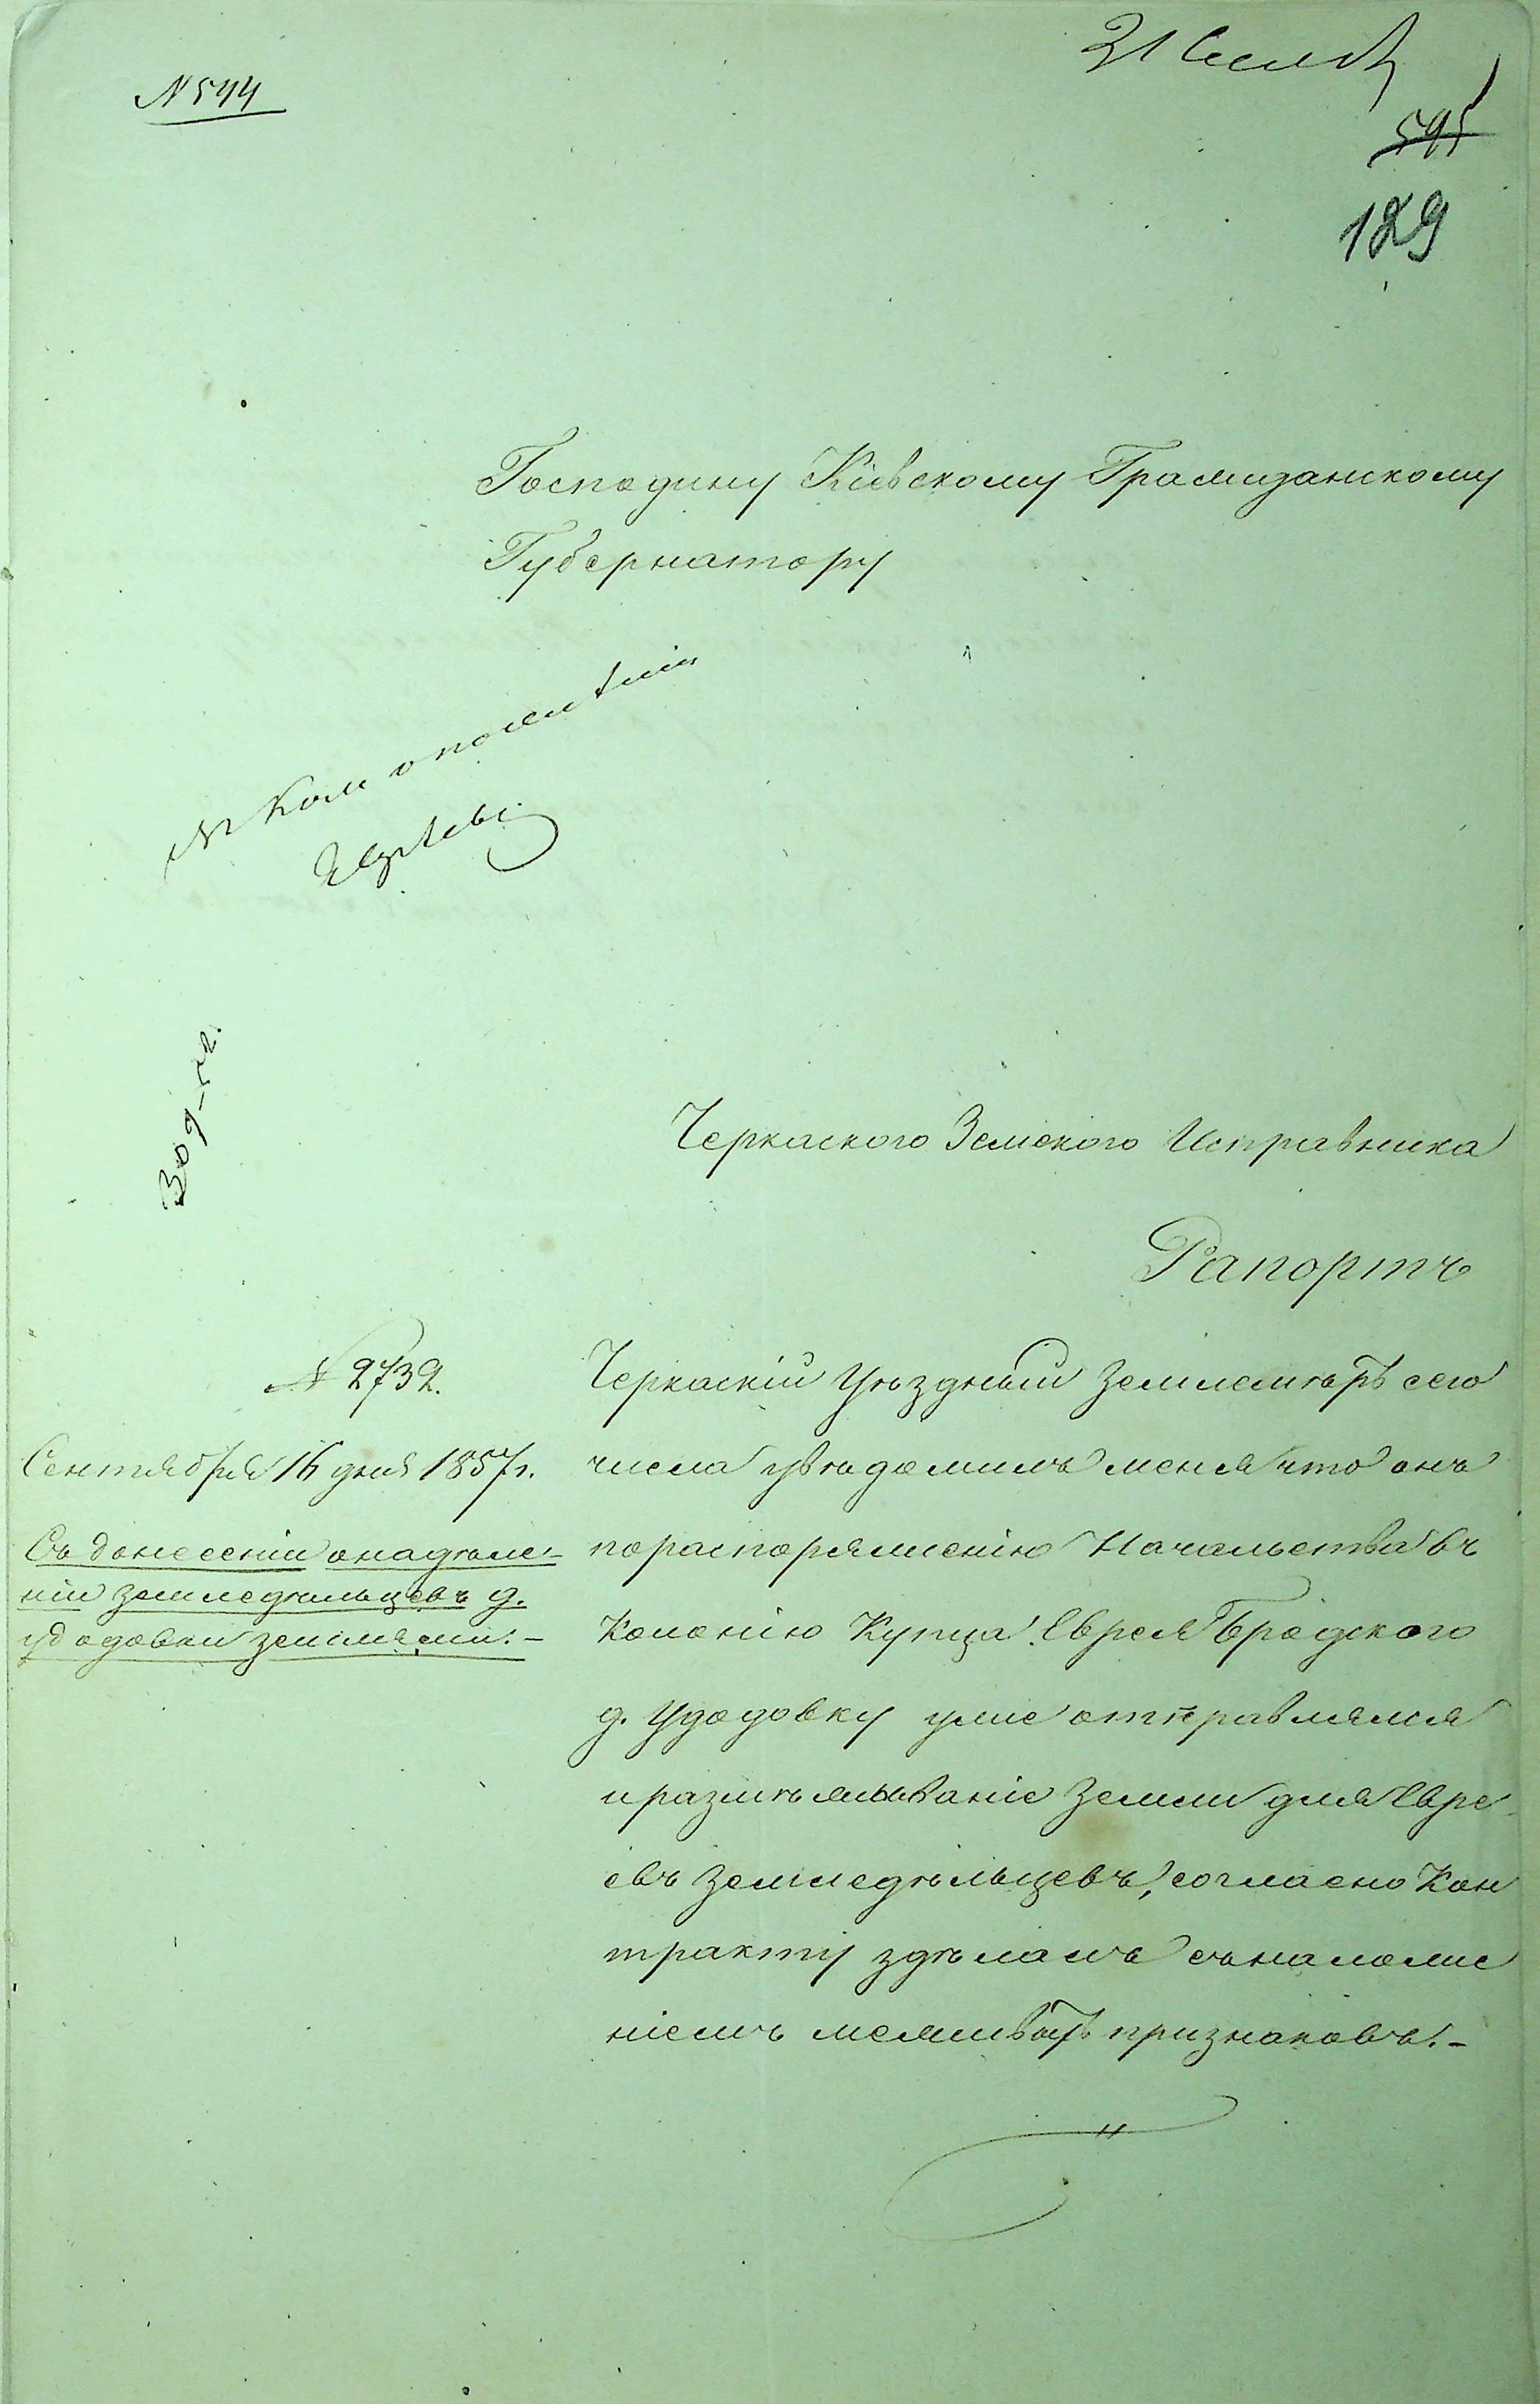 № 544
21 Сент
595
129
Господину Кіевскому Гражданскому
Губернатору
Черкаского Земского Исправника
Рапортъ
№ 2732.
Сентября 16 дня 1857 г.
Съ донесеніи онадѣле-
ніи земледѣльцевъ д.
удодовки землями. -
Черкаскій Уѣздный Землемѣръ сего
числа увѣдомилъ меня что онъ
пораспоряженію Начальства въ
Колонію Купца Еврея Бродского
д. Удодовку уже отправлялся
и размѣжываніе Земли для Евре
евъ Земледѣльцевъ, согласно Кон
тракту здѣлалъ съналоже
ніемъ межевыхъ признаковъ. -